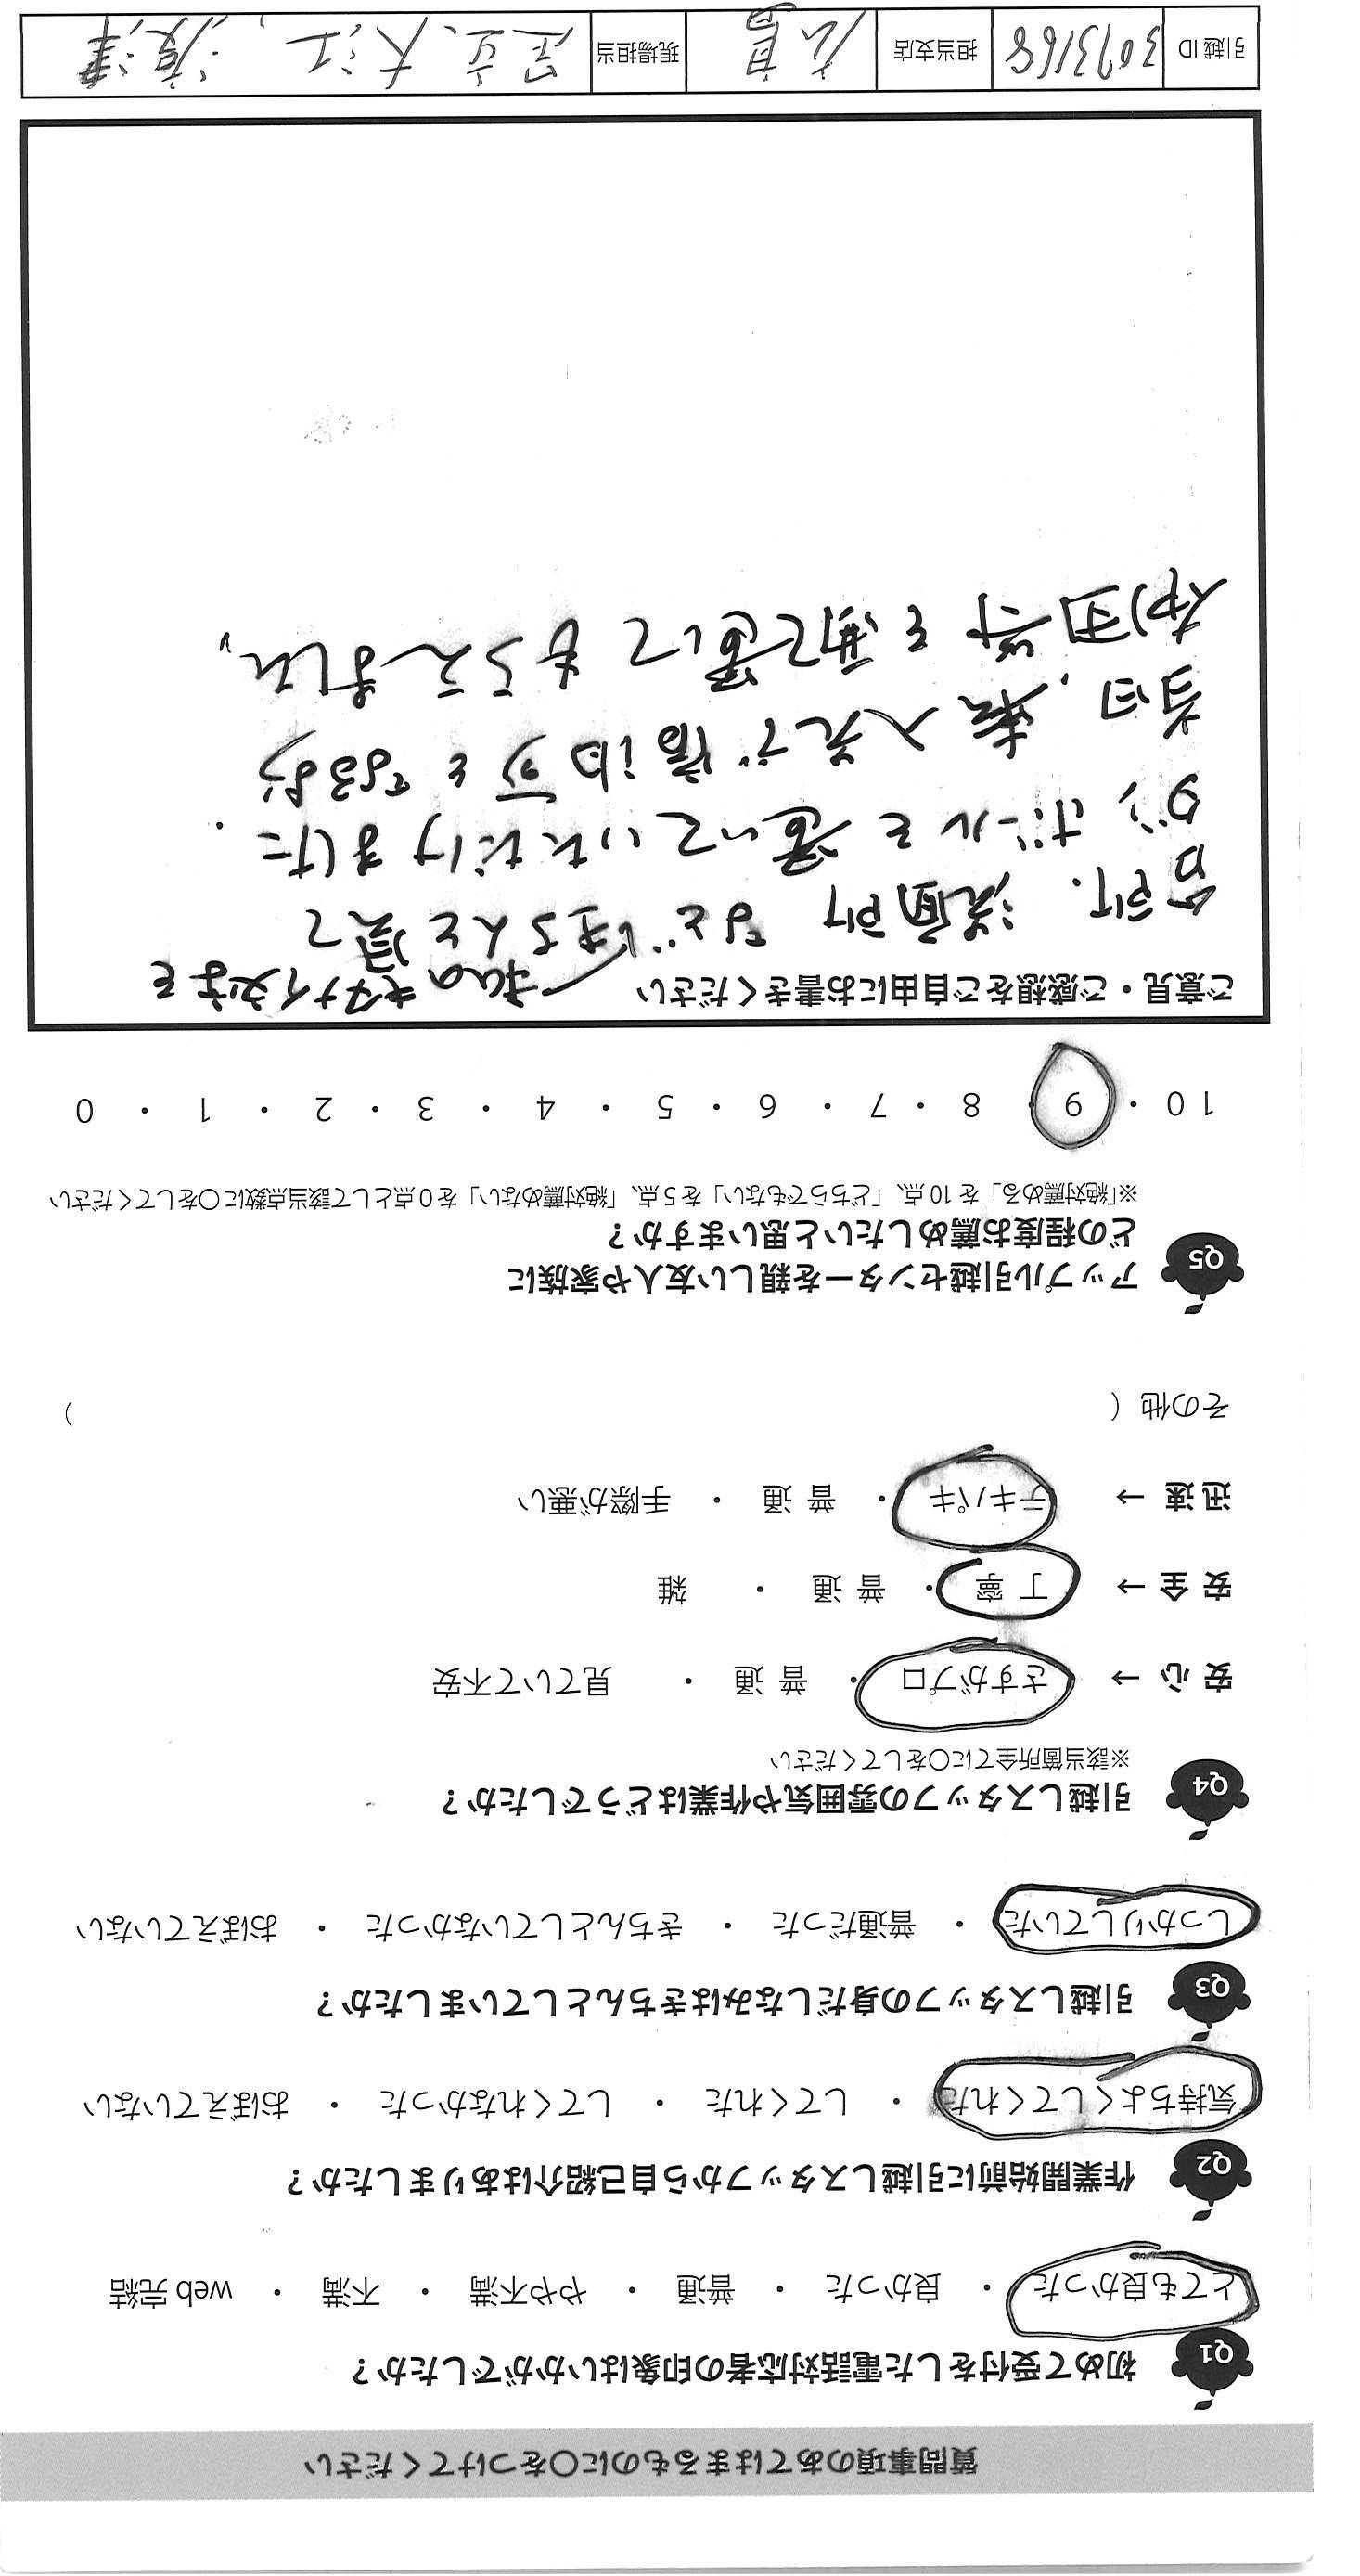 質問事項のあてはまるものに〇をつけてください
Q1 初めて受付をした電話対応者の印象はいかがでしたか？
とても良かった ・ 良かった ・ 普通 ・ やや不満 ・ 不満 ・ web 完結
Q2 作業開始前に引越しスタッフから自己紹介はありましたか？
気持ちよくしてくれた ・ してくれた ・ してくれなかった ・ おぼえていない
Q3 引越しスタッフの身だしなみはきちんとしていましたか？
しっかりしていた ・ 普通だった ・ きちんとしていなかった ・ おぼえていない
Q4 引越しスタッフの雰囲気や作業はどうでしたか？
※該当箇所全てに〇をしてください
安心 → さすがプロ ・ 普通 ・ 見ていて不安
安全 → 丁寧 ・ 普通 ・ 雑
迅速 → テキパキ ・ 普通 ・ 手際が悪い
その他 （ ）
Q5 アップル引越センターを親しい友人や家族に
どの程度お薦めしたいと思いますか？
※「絶対薦める」を 10 点、「どちらでもない」を 5 点、「絶対薦めない」を 0 点として該当点数に〇をしてください
10 ・ 9 ・ 8 ・ 7 ・ 6 ・ 5 ・ 4 ・ 3 ・ 2 ・ 1 ・ 0
ご意見・ご感想をご自由にお書きください
私の
台所、洗面所 など きちんと見て
ダンボールを置いていただけました.
当日、搬入先で宿泊可となるよう
布団等を事前に もらえました。
引越ID 3093168 担当支店 広島 現場担当 足立、大江、濱津